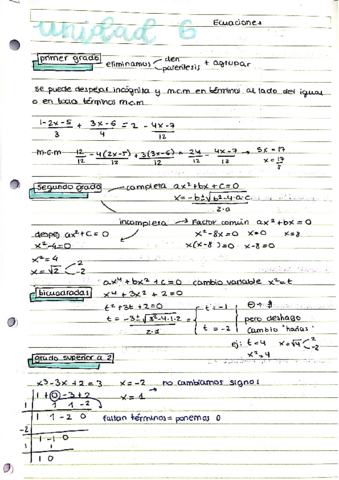 Ecuaciones
unidad 6
primer grado eliminamos den paréntesis + agrupar
se puede despejar incógnita y m.c.m en término al lado del igual
o en todos términos m.c.m
1-2x-5/3 + 3x-6/4 = 2 - 4x-7/12
m.c.m 12/12 - 4(2x-5)/12 + 3(3x-6)/12 = 24/12 - 4x-7/12 → 5x = 17
x = 17/5
segundo grado completa ax²+bx+c=0
x = -b±√b²-4·a·c / 2·a
incompleta → Factor común ax²+bx=0
despej ax²+c=0 x²-8x=0 x=0 x=8
x²-4=0 x(x-8)=0 x-8=0
x²=4
x=√2 < 2 -2
ax⁴+bx²+c=0 cambio variable x²=t
bicuadradas x⁴+3x²+2=0
t²+3t+2=0
t = -3±√3²-4·1·2 / 2·1 = t=-1 t=-2
pero deshago
cambio "hadas"
ej: t=4 x=√4 < 2 -2
x²=4
grado superior a 2
x³-3x+2=3 x=-2 → no cambiamos signo!
1+0-3+2 x=1
1 1 1 -2
1 1 -2 0 faltan términos = ponemos 0
-2
1 -1 0
1 1
1 0